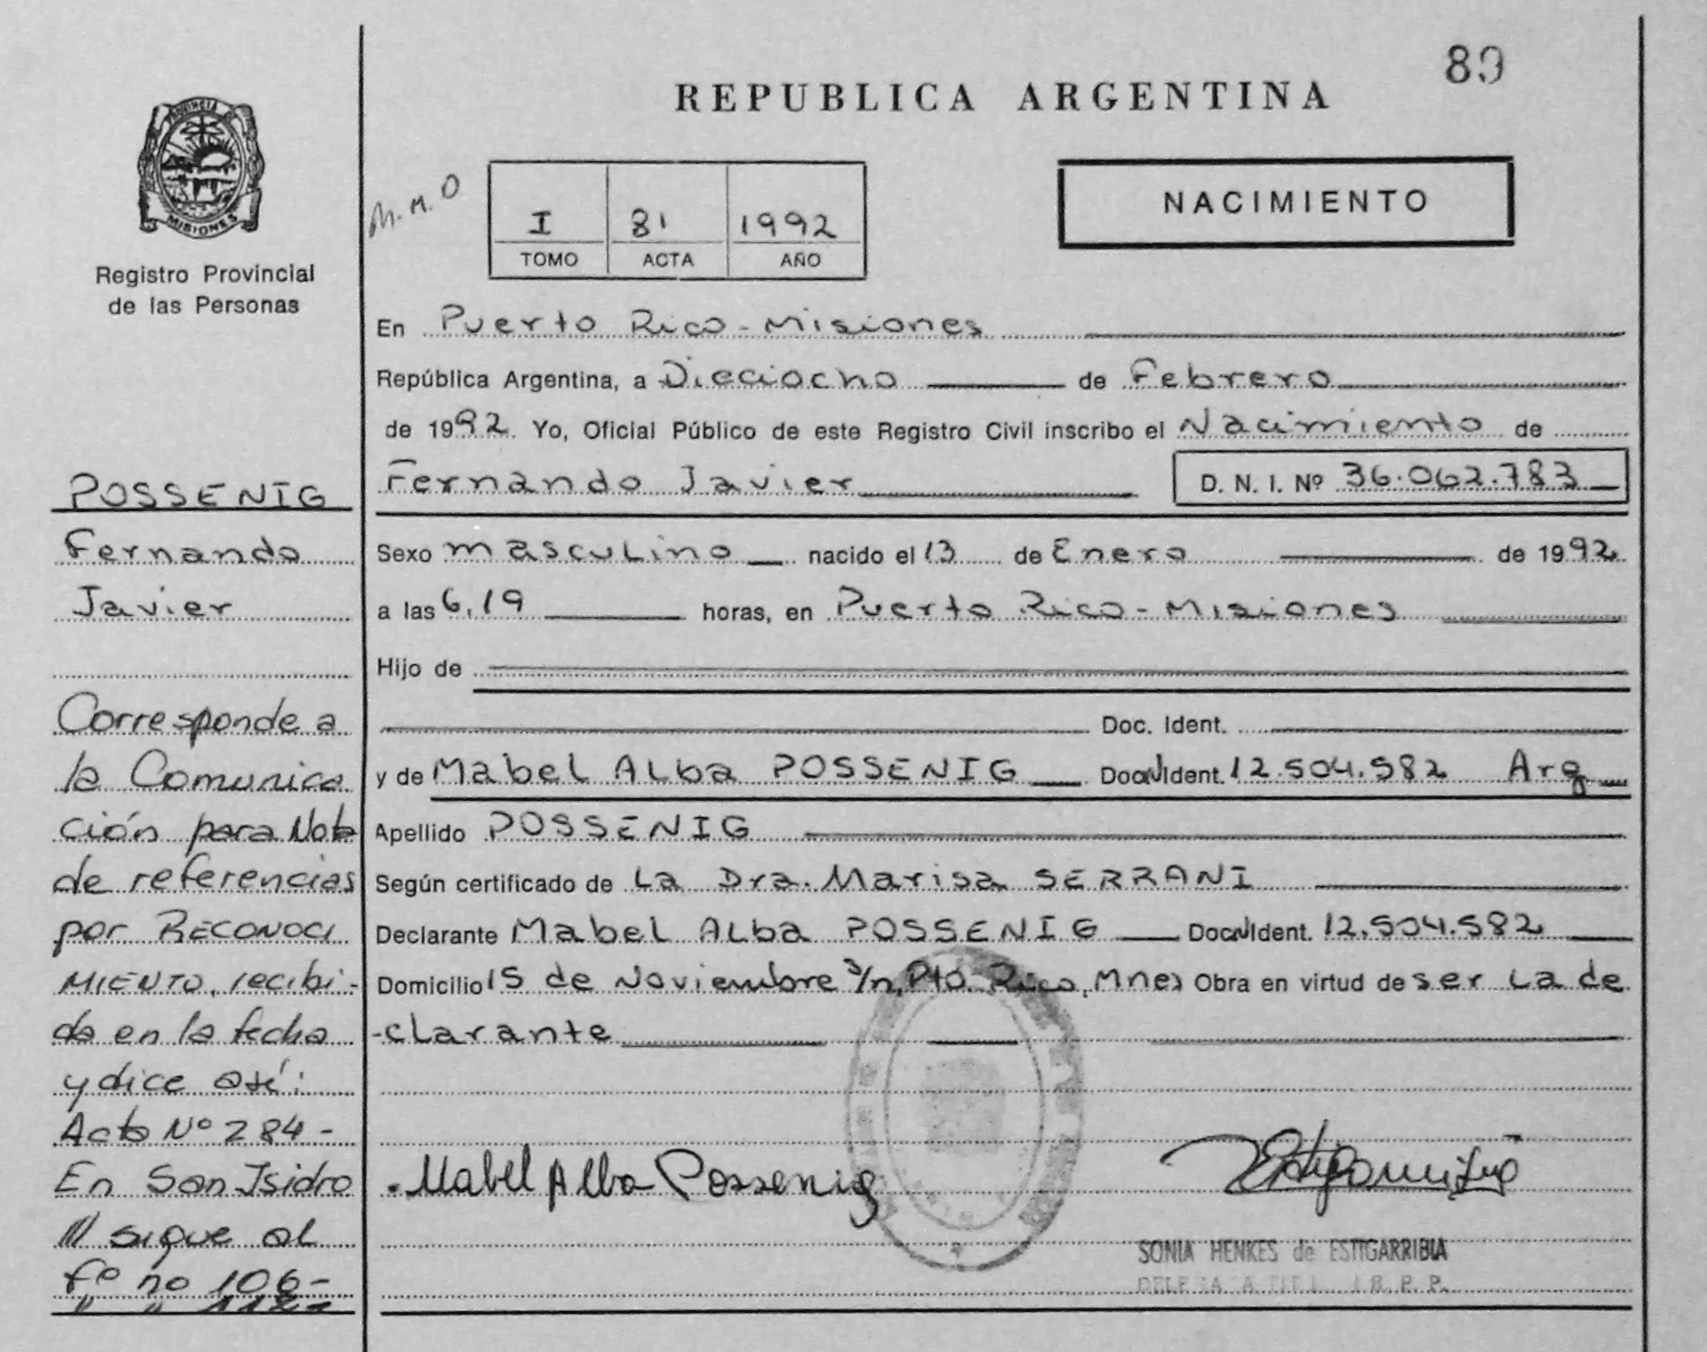 89
REPUBLICA ARGENTINA
PROVINCIA
MISIONES
Registro Provincial
de las Personas
M.M.O
I 81 1992
TOMO ACTA AÑO
NACIMIENTO
En Puerto Rico - Misiones
República Argentina, a Dieciocho de Febrero
de 1992. Yo, Oficial Público de este Registro Civil inscribo el Nacimiento de
Fernando Javier D. N. I. Nº 36.062.783
Sexo masculino nacido el 13 de Enero de 1992
a las 6,19 horas, en Puerto Rico - Misiones
Hijo de
Doc. Ident.
y de Mabel Alba POSSENIG Doc. Ident. 12.504.582 Arg
Apellido POSSENIG
Según certificado de La Dra. Marisa SERRANI
Declarante Mabel Alba POSSENIG Doc. Ident. 12.504.582
Domicilio 15 de Noviembre s/n, Pto. Rico, Mnes Obra en virtud de ser la de
-clarante
Mabel Alba Possenig
SONIA HENKES de ESTIGARRIBIA
POSSENIG
Fernando
Javier
Corresponde a
la Comunica
ción para Nota
de referencias
por RECONOCI
MIENTO, recibi-
da en la fecha
y dice así:
Acta Nº 284-
En San Isidro
/// sigue al
Fº nº 106-
" "